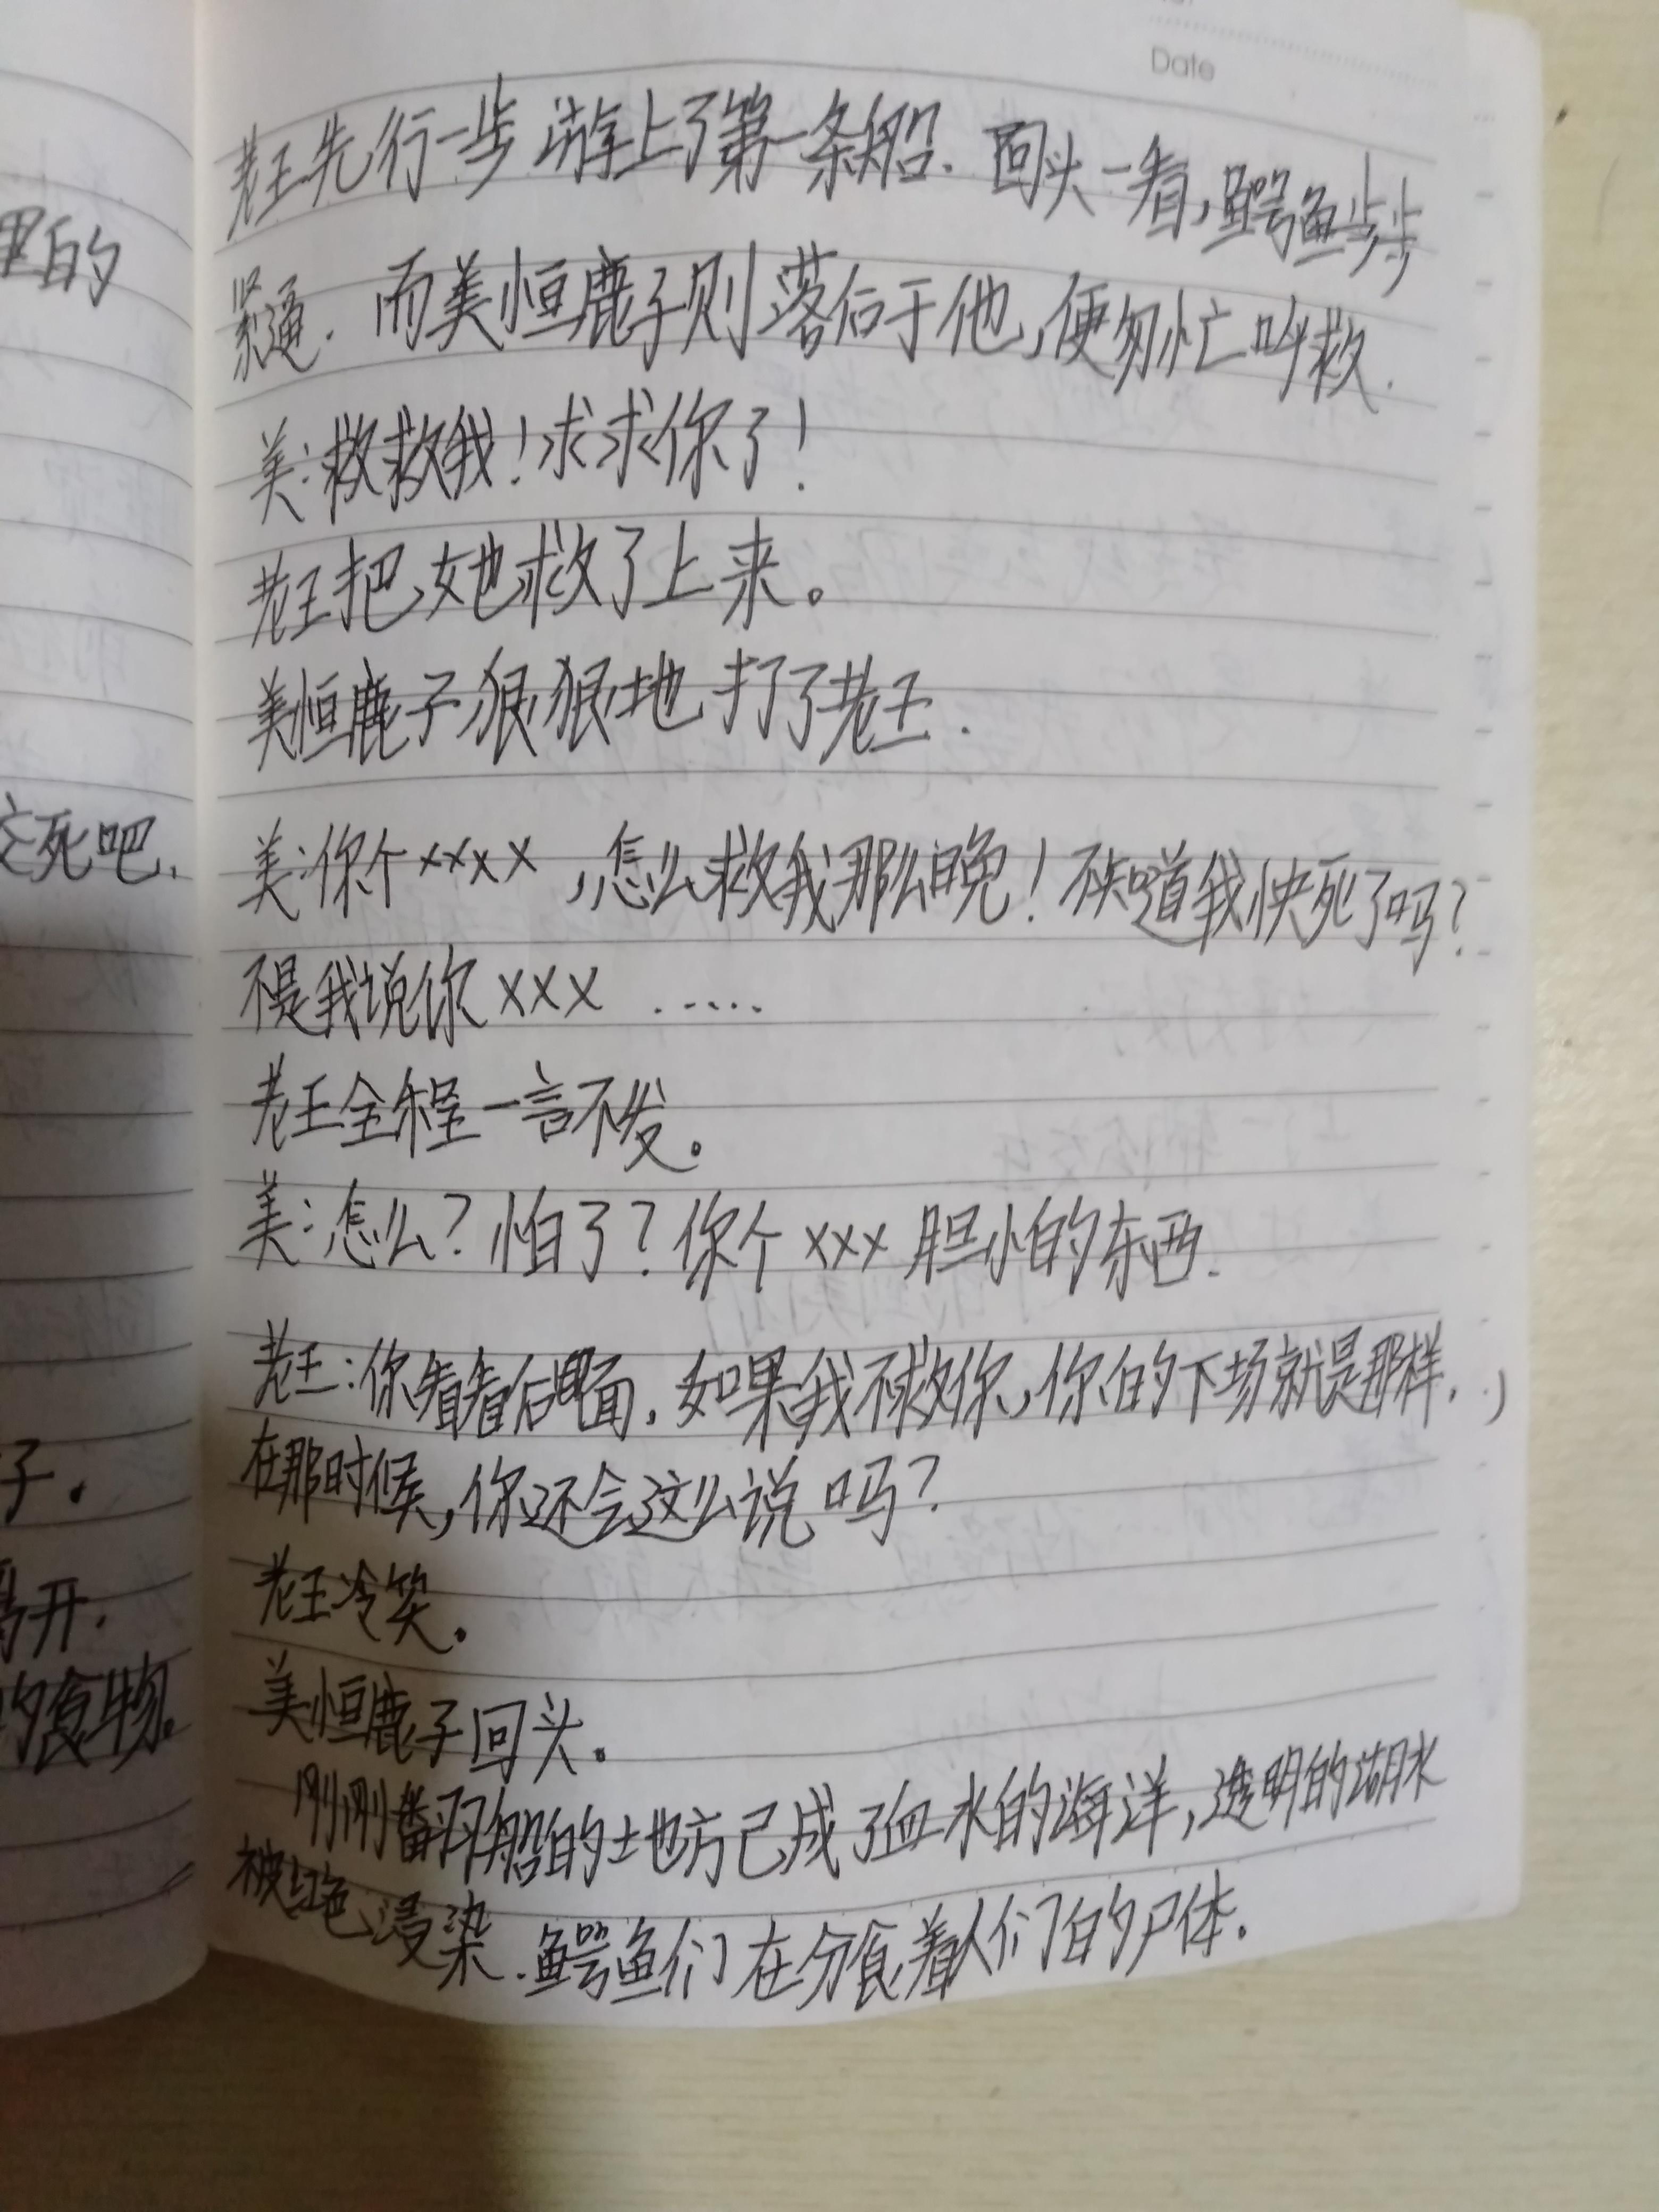 Date
老王先行一步游上了第一条船.回头一看,鳄鱼步步
紧逼.而美恒鹿子则落后于他,便匆忙叫救.
美:救救我!求求你了!
老王把她救了上来。
美恒鹿子狠狠地打了老王.
美:你个××××,怎么救我那么晚!不知道我快死了吗?
不是我说你×××.....
老王全程一言不发。
美:怎么?怕了?你个×××胆小的东西.
老王:你看看后面,如果我不救你,你的下场就是那样.,
在那时候,你还会这么说吗?
老王冷笑。
美恒鹿子回头。
刚刚翻船的地方已成了血水的海洋,透明的湖水
被红色浸染.鳄鱼们在分食着人们的尸体.
里的
死吧.
子.
开.
的食物。